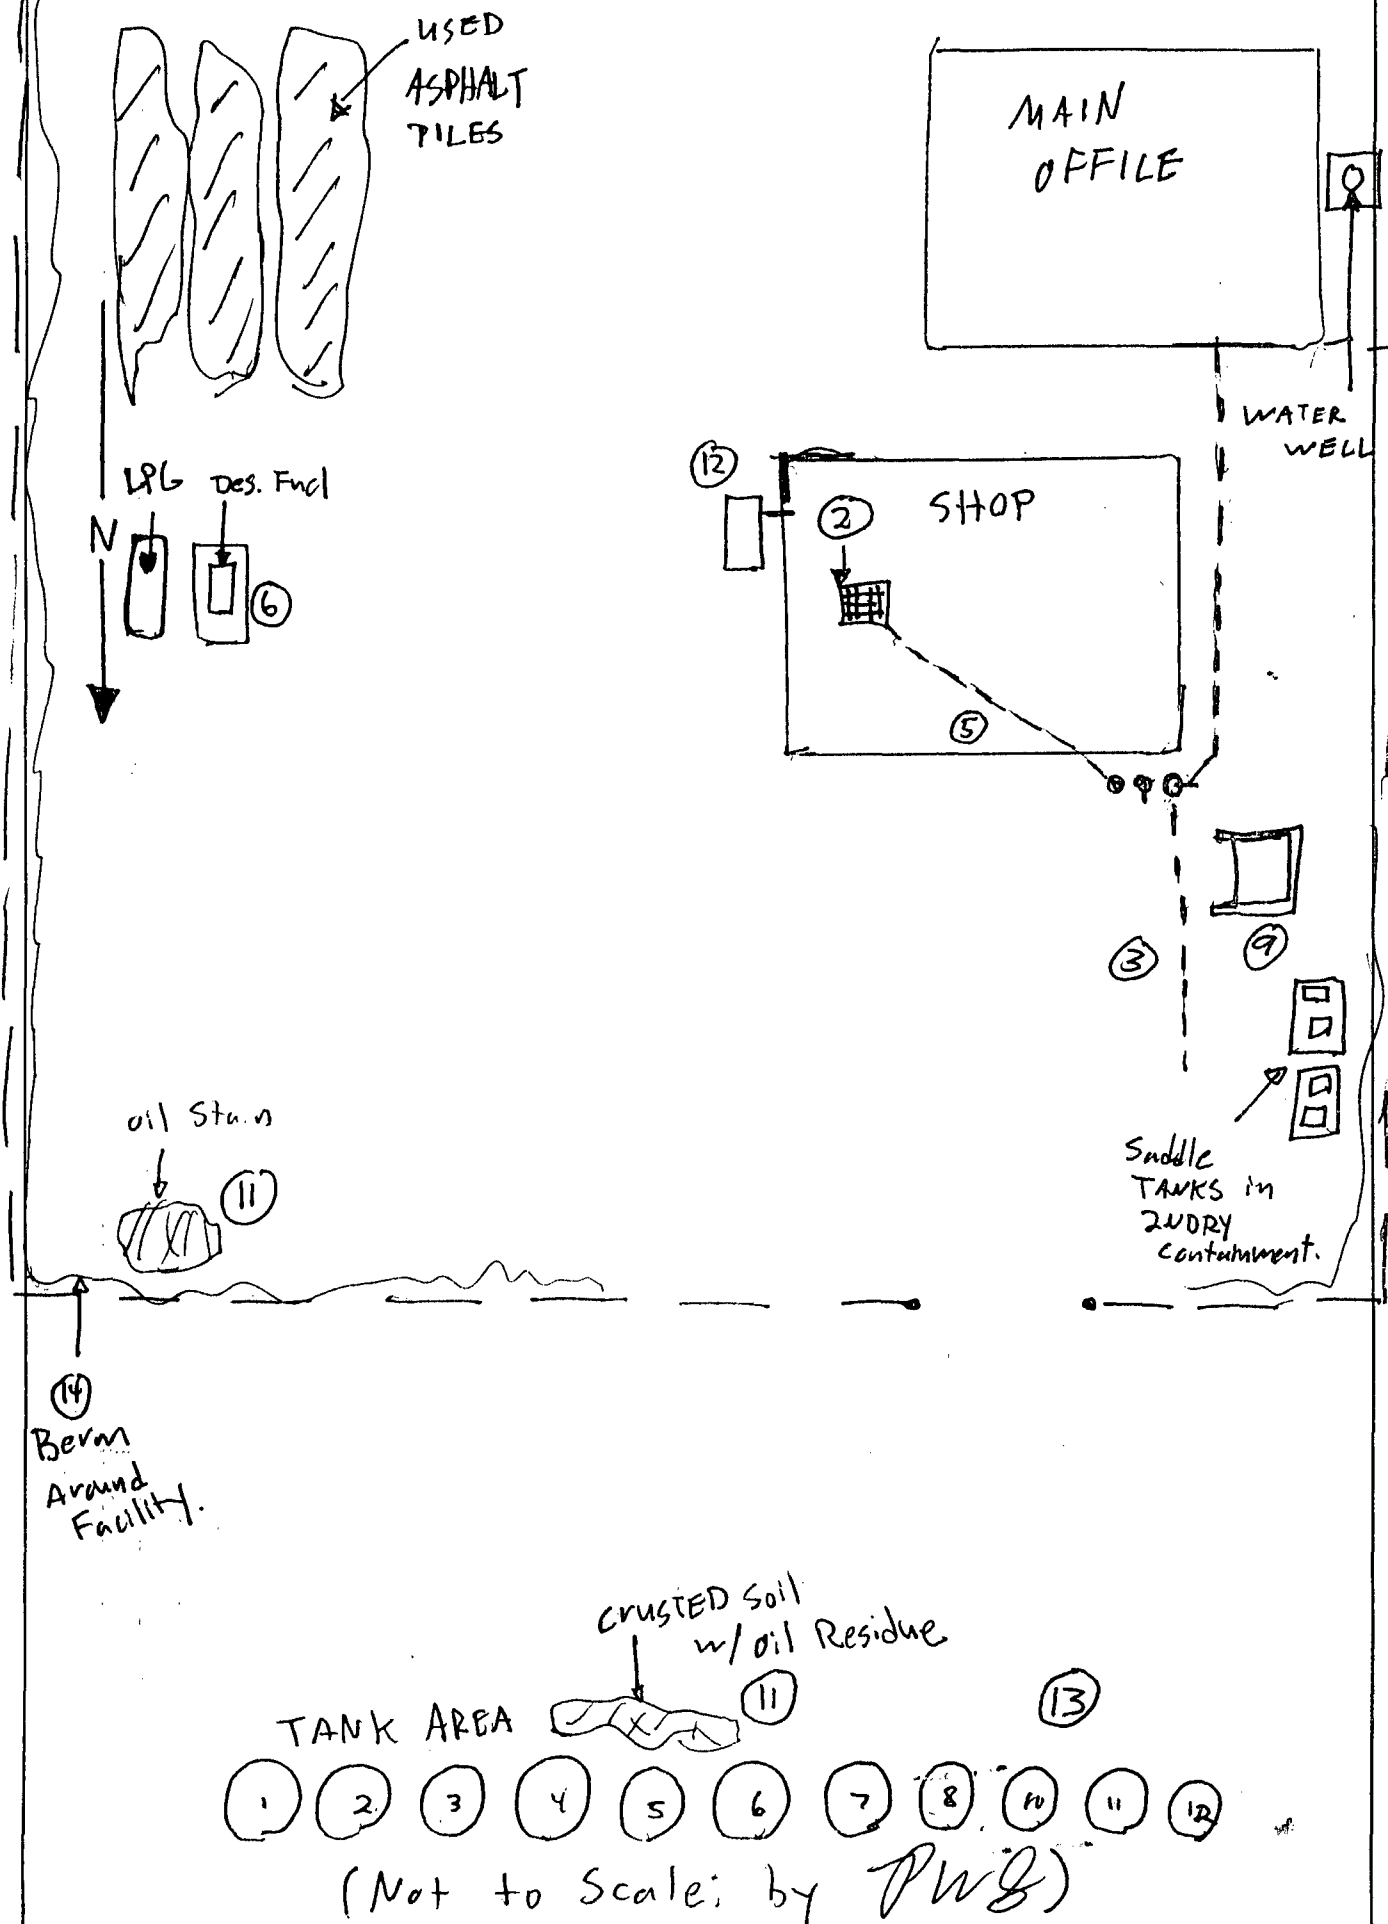 USED
ASPHALT
PILES
MAIN
OFFICE
WATER
WELL
LPG
Des. Fuel
N
6
12
2
SHOP
5
3
9
Saddle
TANKS in
2NDRY
Containment.
oil Stain
11
14
Berm
Around
Facility.
CRUSTED Soil
w/ oil Residue
11
13
TANK AREA
1 2 3 4 5 6 7 8 10 11 12
(Not to Scale; by PWS)